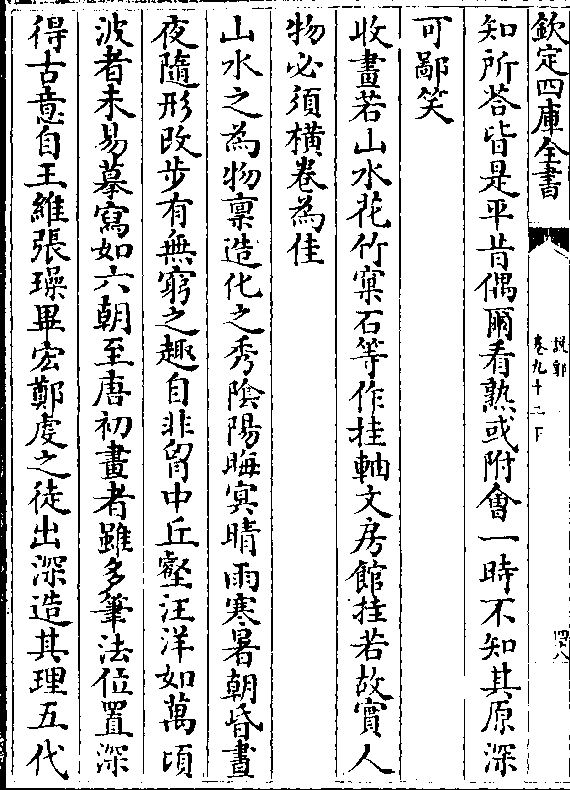 欽定四庫全書
說郛
卷九十二下
四八
知所荅皆是平昔偶爾看熟或附會一時不知其原深
可鄙笑
收畫若山水花竹窠石等作挂軸文房館挂若故實人
物必須橫卷為佳
山水之為物稟造化之秀隂陽晦冥晴雨寒暑朝昏晝
夜隨形改步有無窮之趣自非胷中丘壑汪洋如萬頃
波者未易摹寫如六朝至唐初畫者雖多筆法位置深
得古意自王維張璪畢宏鄭虔之徒出深造其理五代